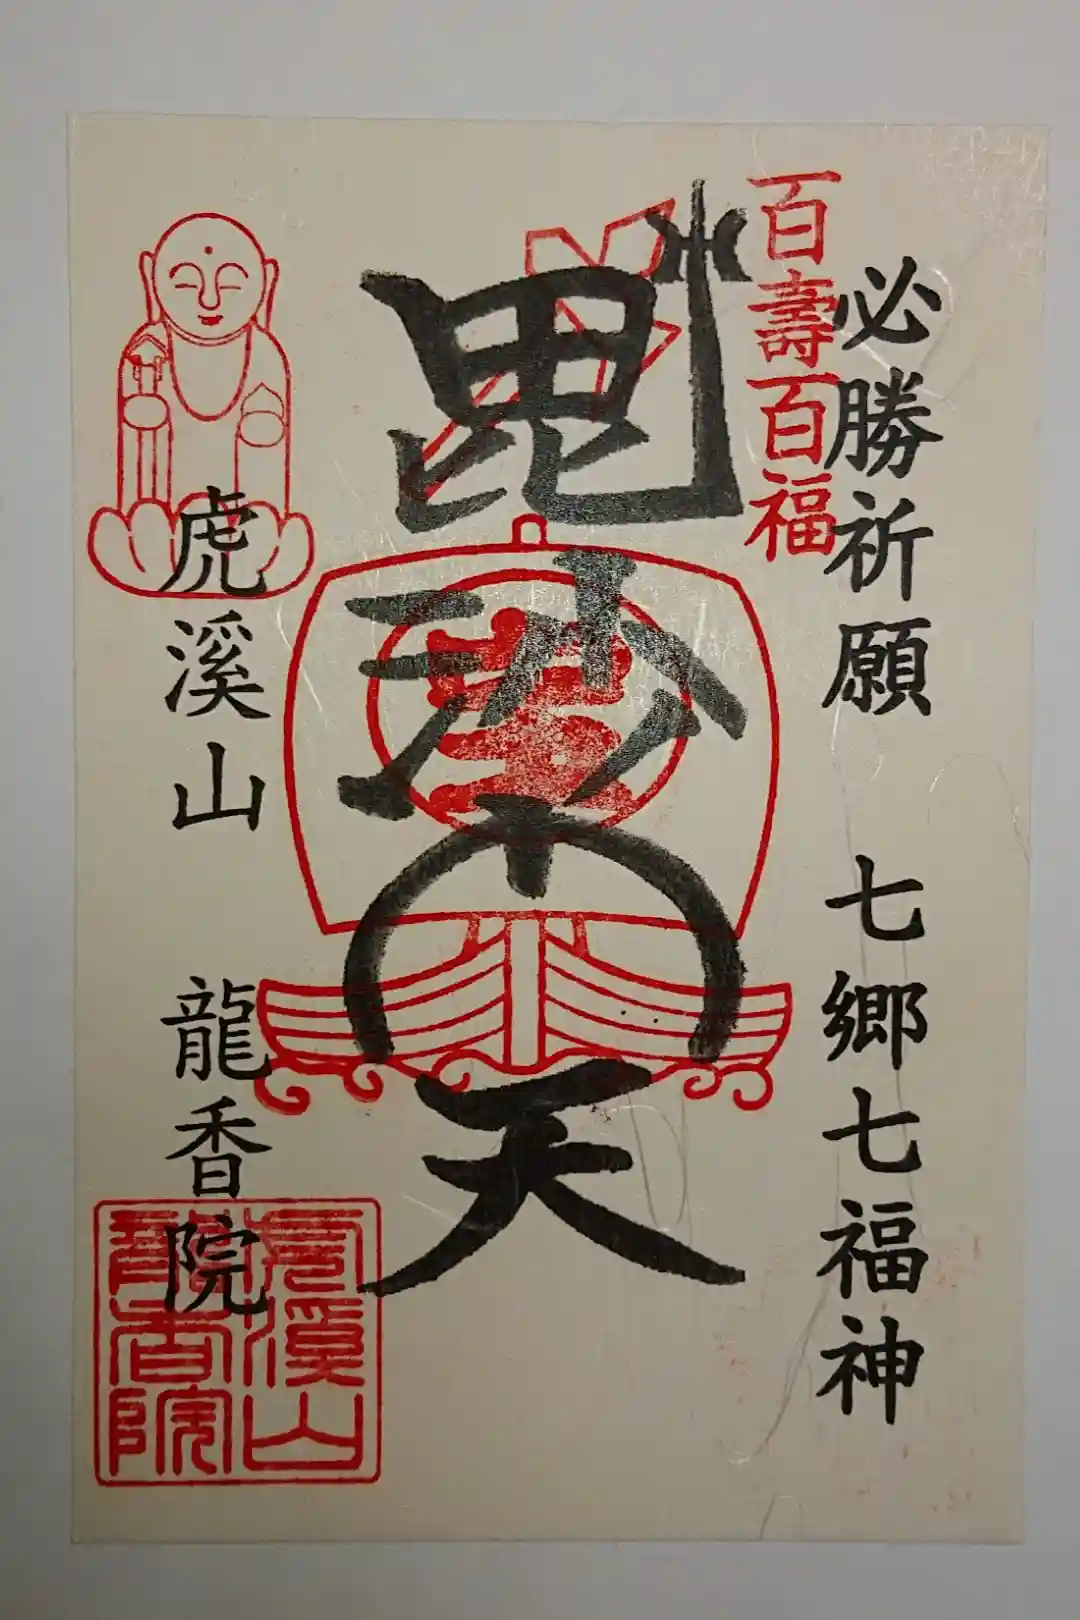 必勝祈願 七郷七福神
百壽百福
毘沙门天
虎溪山 龍香院
虎溪山
龍香院